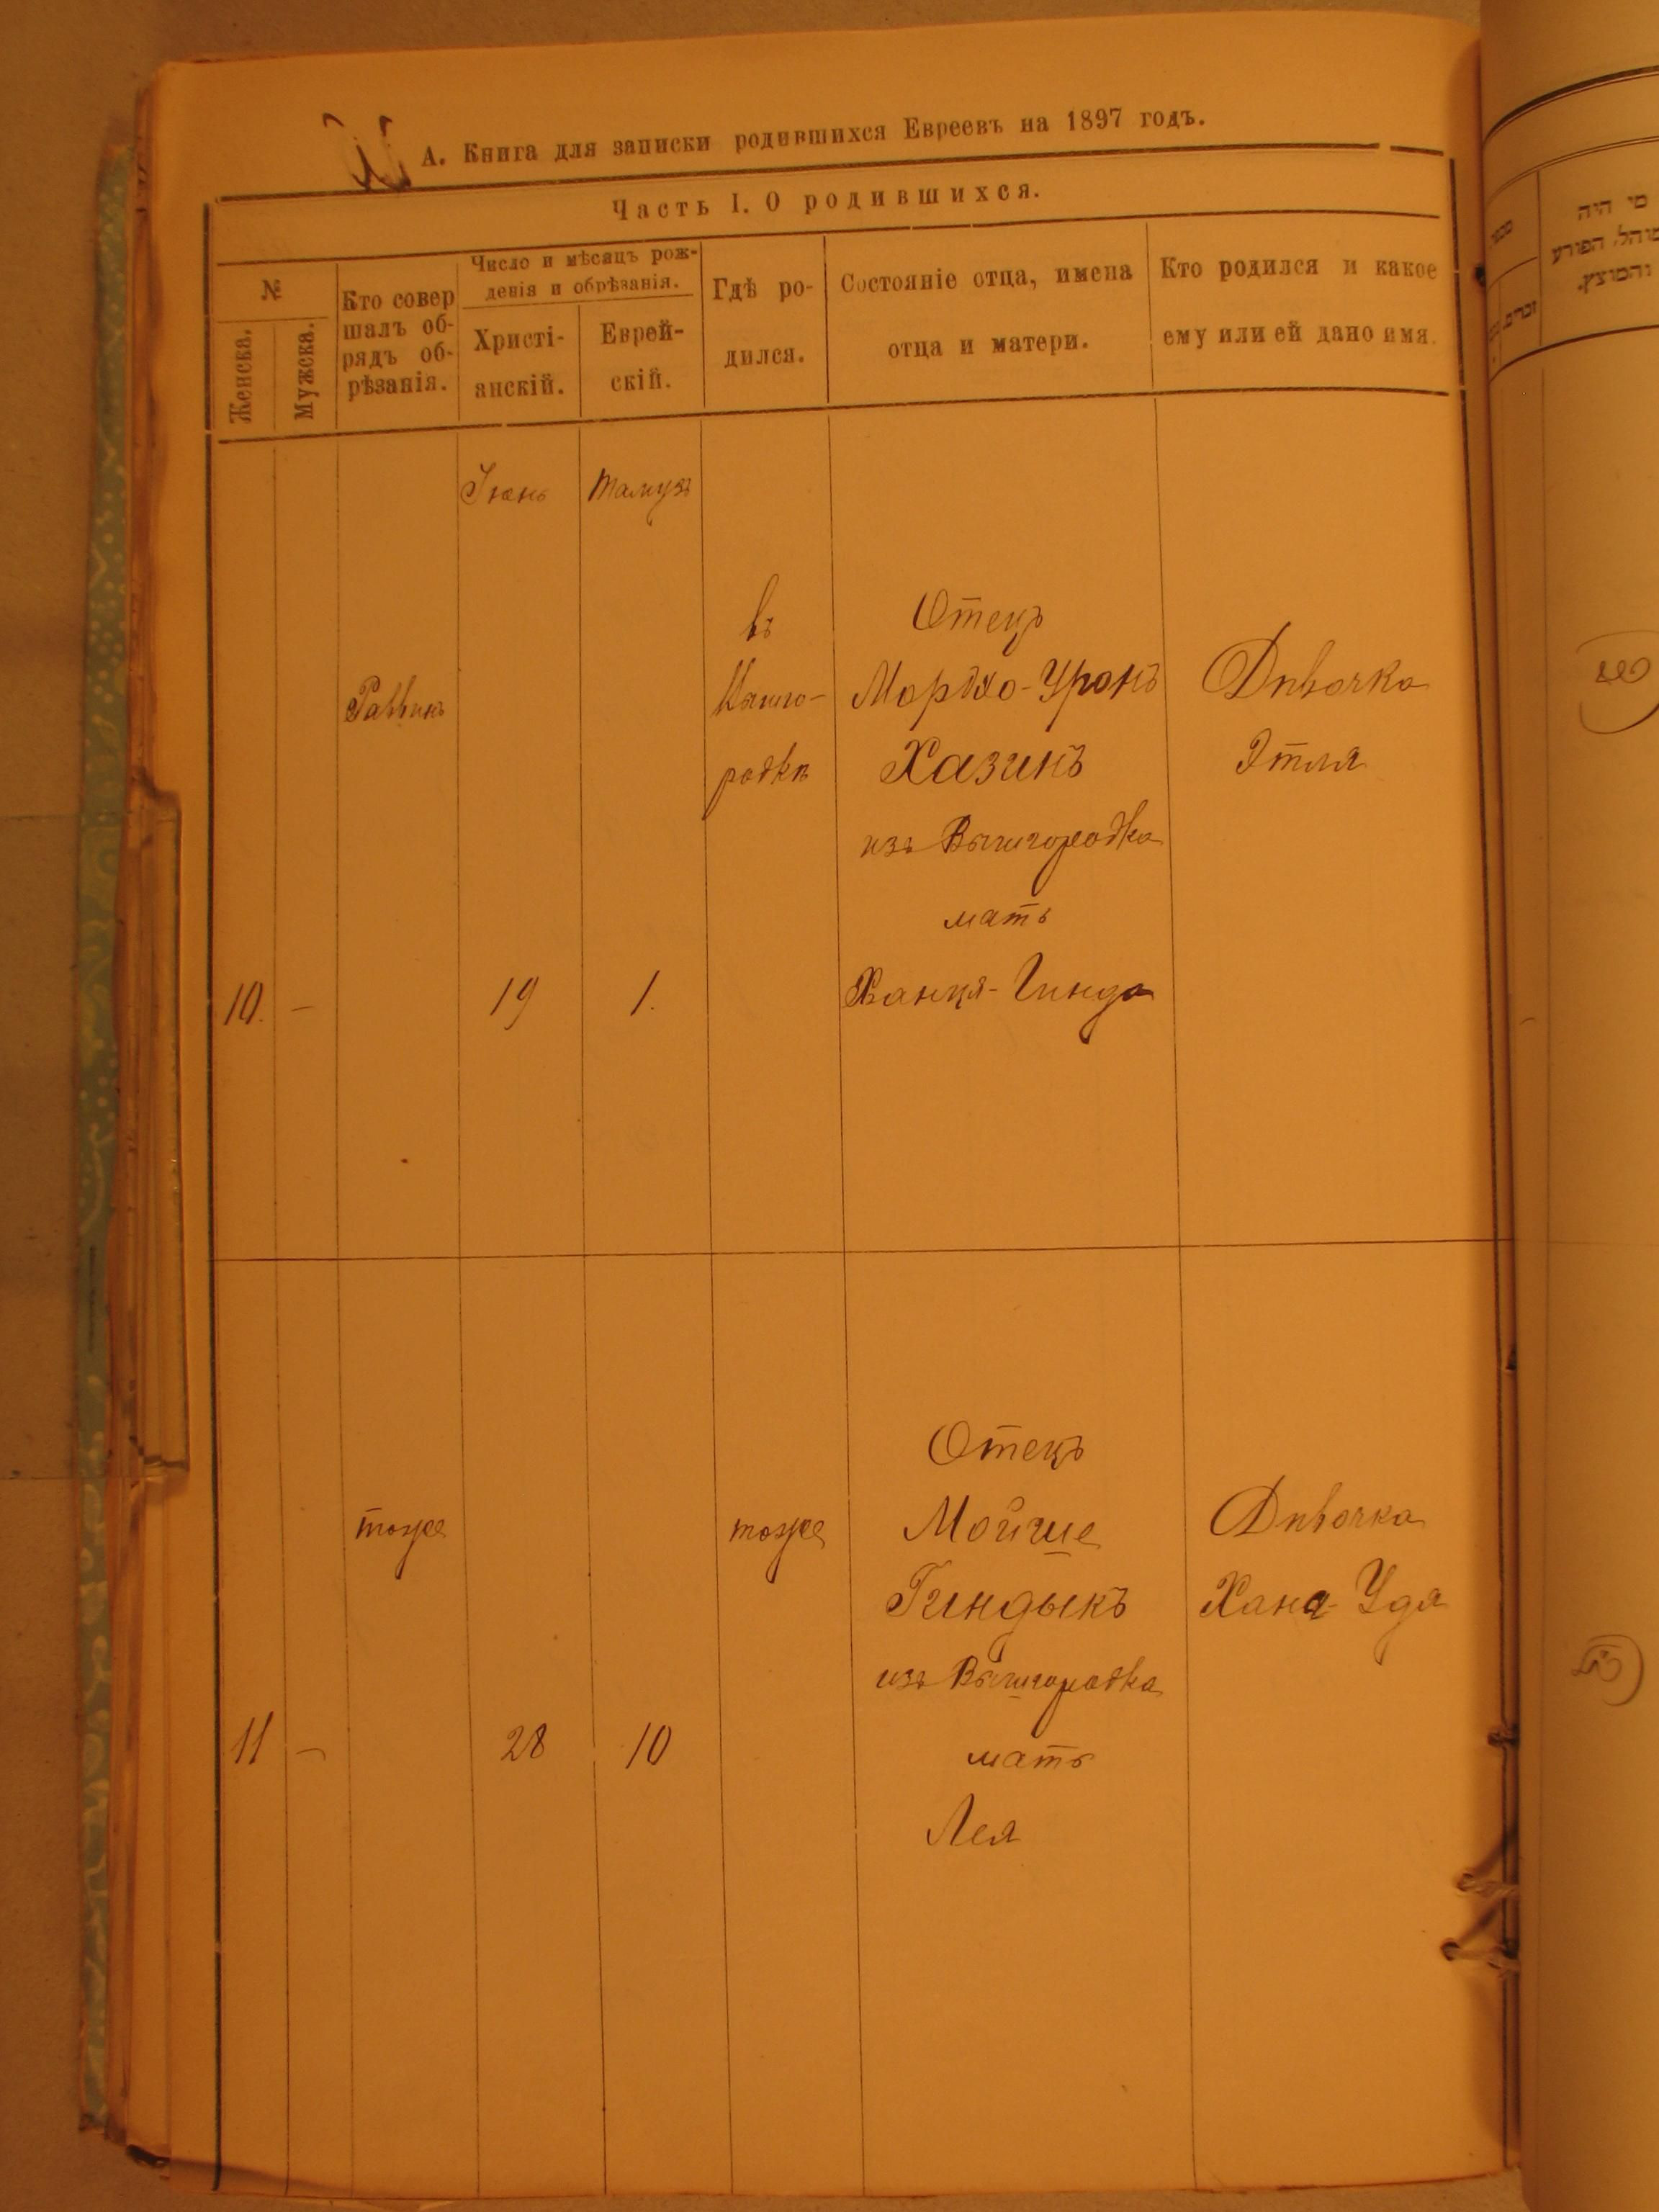 А. Книга для записки родившихся Евреевъ на 1897 годъ.
Часть I. О родившихся.
№
Женска.
Мужска.
Кто совер
шалъ об-
рядъ об-
рѣзанія.
Число и мѣсяцъ рож-
денія и обрѣзанія.
Христі-
анскій.
Еврей-
скій.
Гдѣ ро-
дился.
Состояніе отца, имена
отца и матери.
Кто родился и какое
ему или ей дано имя.
Іюнь
Тамузъ
10.
–
Раввинъ
19
1.
въ
Вышго-
родкѣ
Отецъ
Мордко-Уронъ
Хазинъ
изъ Вышгородка
мать
Ханця-Гинда
Дѣвочка
Этля
11
–
тоже
28
10
тоже
Отецъ
Мойше
Гиндыкъ
изъ Вышгородка
мать
Лея
Дѣвочка
Хана-Удя
מי היה
המוהל, הפורע
והמוצץ.
מספר
זכרים.